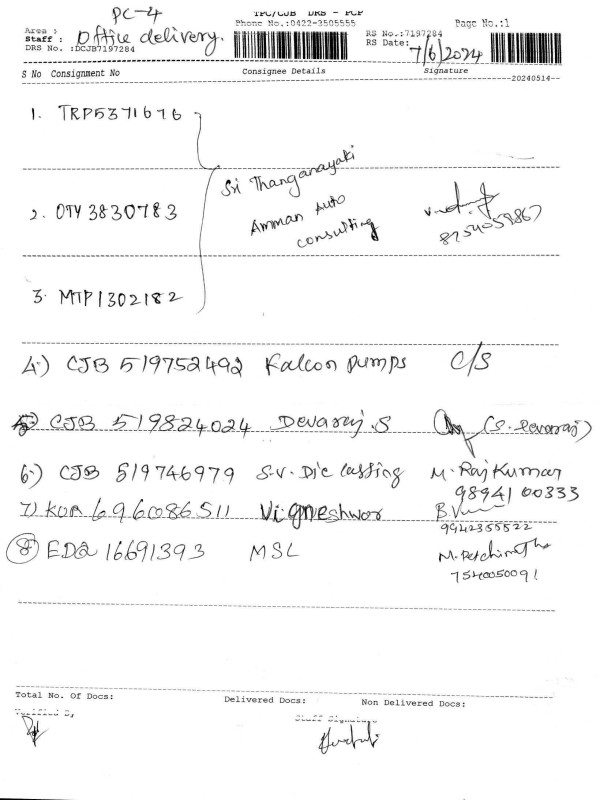 PC-4
TPC/CJB DRS - PCP
Area :
Phone No.:0422-3505555
Page No.:1
Staff : Office delivery.
RS No.:7197284
DRS No. :DCJB7197284
RS Date: 7/6/2024
S No Consignment No Consignee Details Signature
20240514
1. TRP5371676
Sri Thanganayaki
2. OTY3830783 Amman Auto
consulting
8754059867
3. MTP1302182
4.) CJB 519752492 Falcon pumps C/S
5) CJB 519824024 Devaraj.S (S. Devaraj)
6.) CJB 519746979 S.V. Die Casting M. Raj Kumar
98941 00333
7) KUA 696086511 Vigneshwar
9942355522
8 EDQ 16691393 MSL
7540050091
Total No. Of Docs: Delivered Docs: Non Delivered Docs:
Verified By
Staff Signature